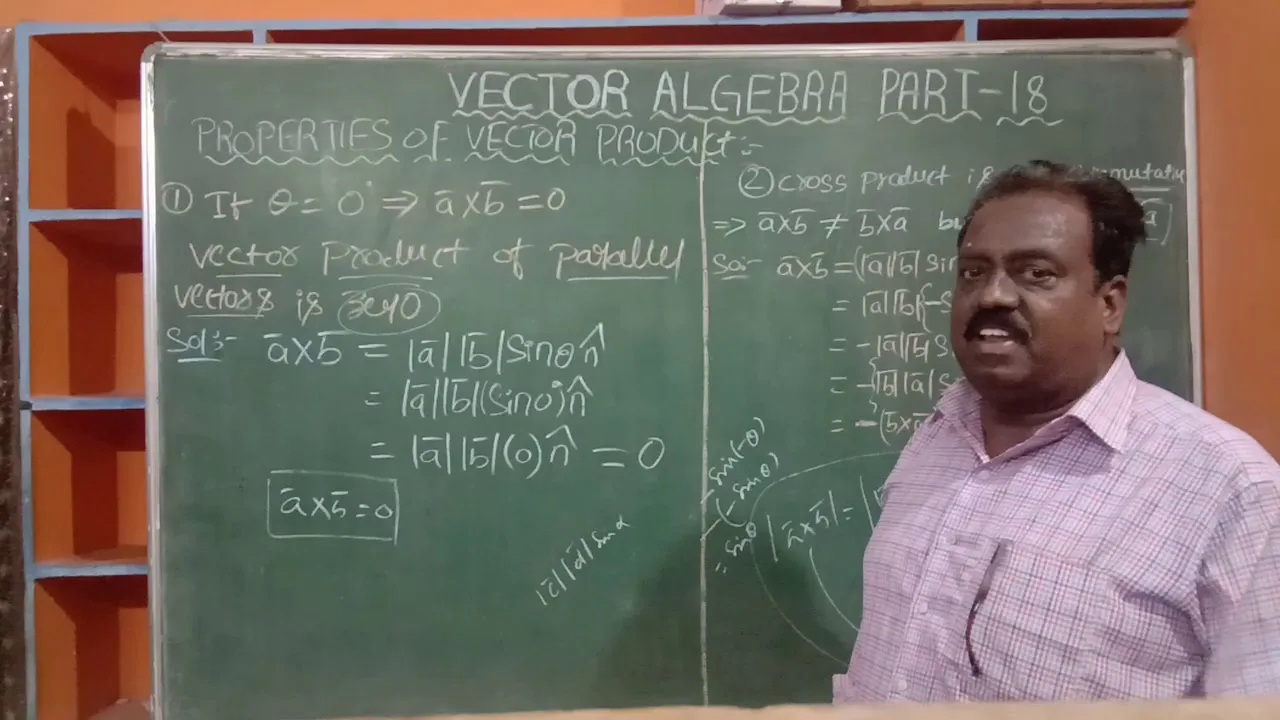 VECTOR ALGEBRA PART-18
PROPERTIES OF VECTOR PRODUCT:-
① If θ = 0° ⇒ a̅×b̅ = 0
Vector Product of Parallel
Vectors is zero
Sol:- a̅×b̅ = |a̅||b̅|Sinθ n̂
= |a̅||b̅|(Sin0°)n̂
= |a̅||b̅|(0)n̂ = 0
a̅×b̅ = 0
|c̅||d̅|sinα
② Cross Product is
⇒ a̅×b̅ ≠ b̅×a̅
Sol:- a̅×b̅ = (|a̅||b̅|Sin
= |a̅||b̅|{-S
= -|a̅||b̅|S
= -{|b̅||a̅|S
= -(b̅×a̅
-sin(-θ)
-(-sinθ)
= sinθ
|a̅×b̅| = |